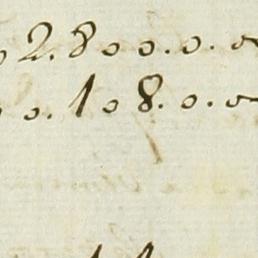 02.800.0.0
0.108.0.0